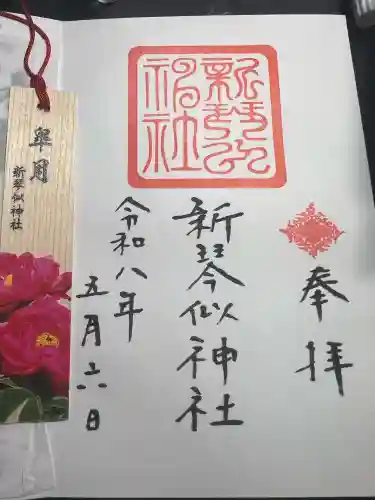 奉拝
新琴似神社
令和八年
五月六日
新琴似神社
皐月
新琴似神社